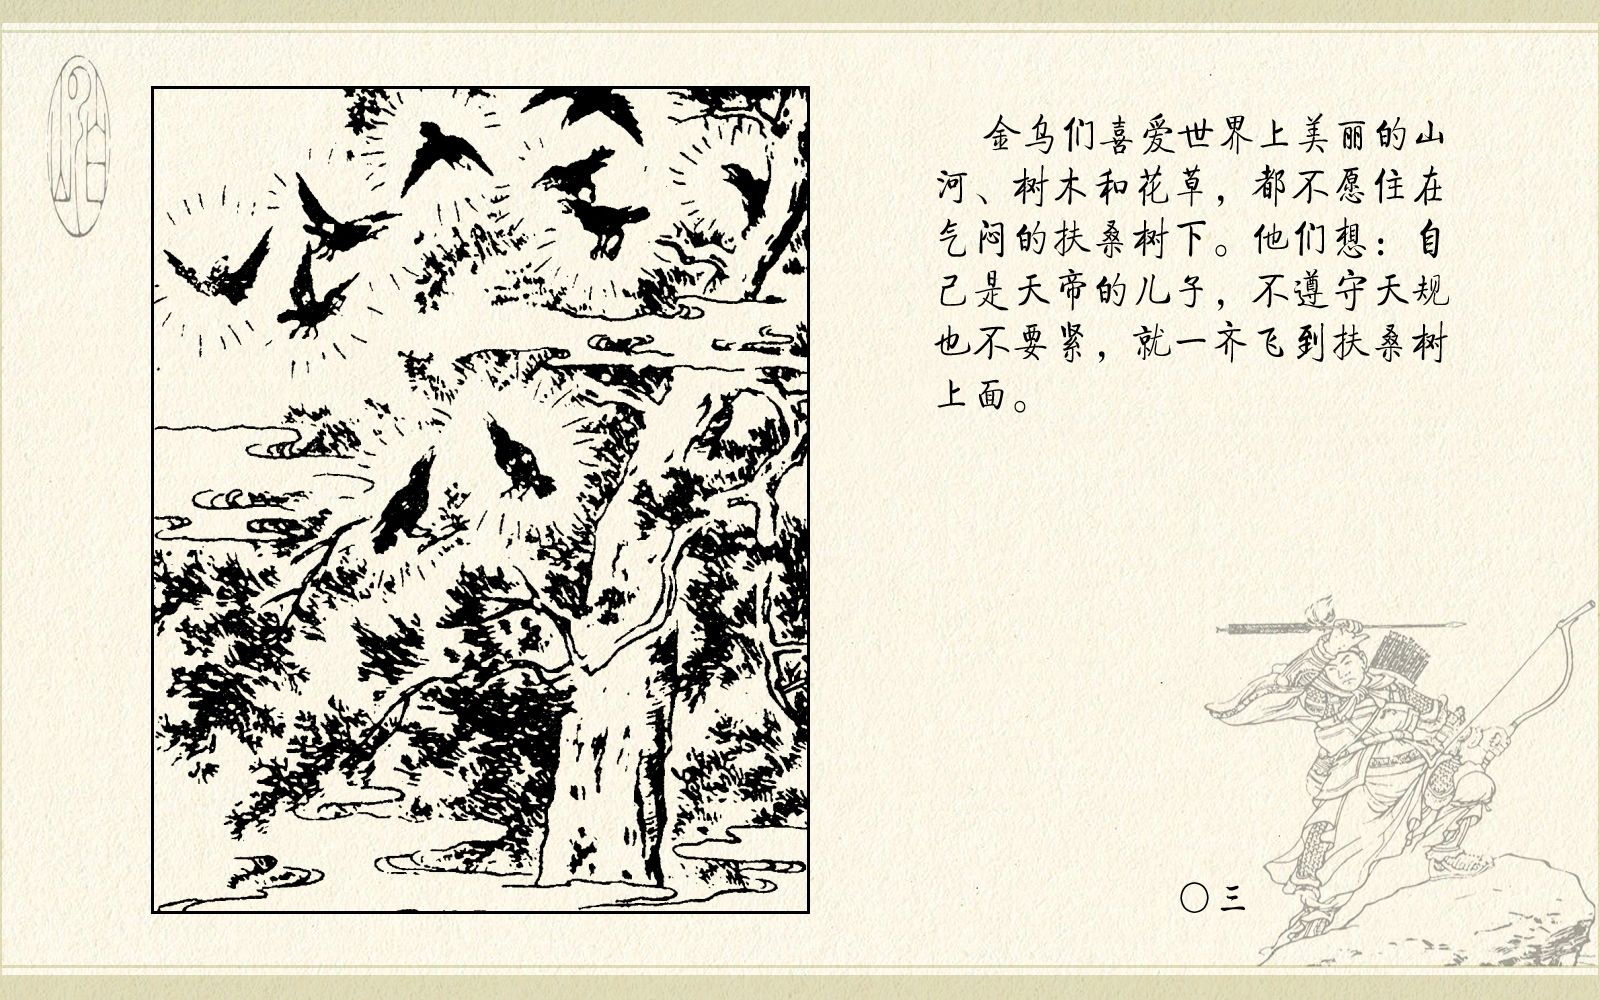 金乌们喜爱世界上美丽的山
河、树木和花草，都不愿住在
气闷的扶桑树下。他们想：自
己是天帝的儿子，不遵守天规
也不要紧，就一齐飞到扶桑树
上面。
〇三